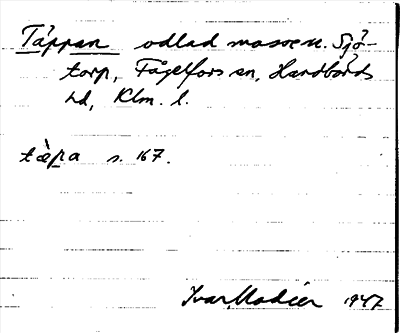 Täppan odlad mosse n. Sjö-
torp, Fågelfors sn, Handbörds
hd, Klm. l.
tæ̀pa s. 167.
Ivar Modéer 1947